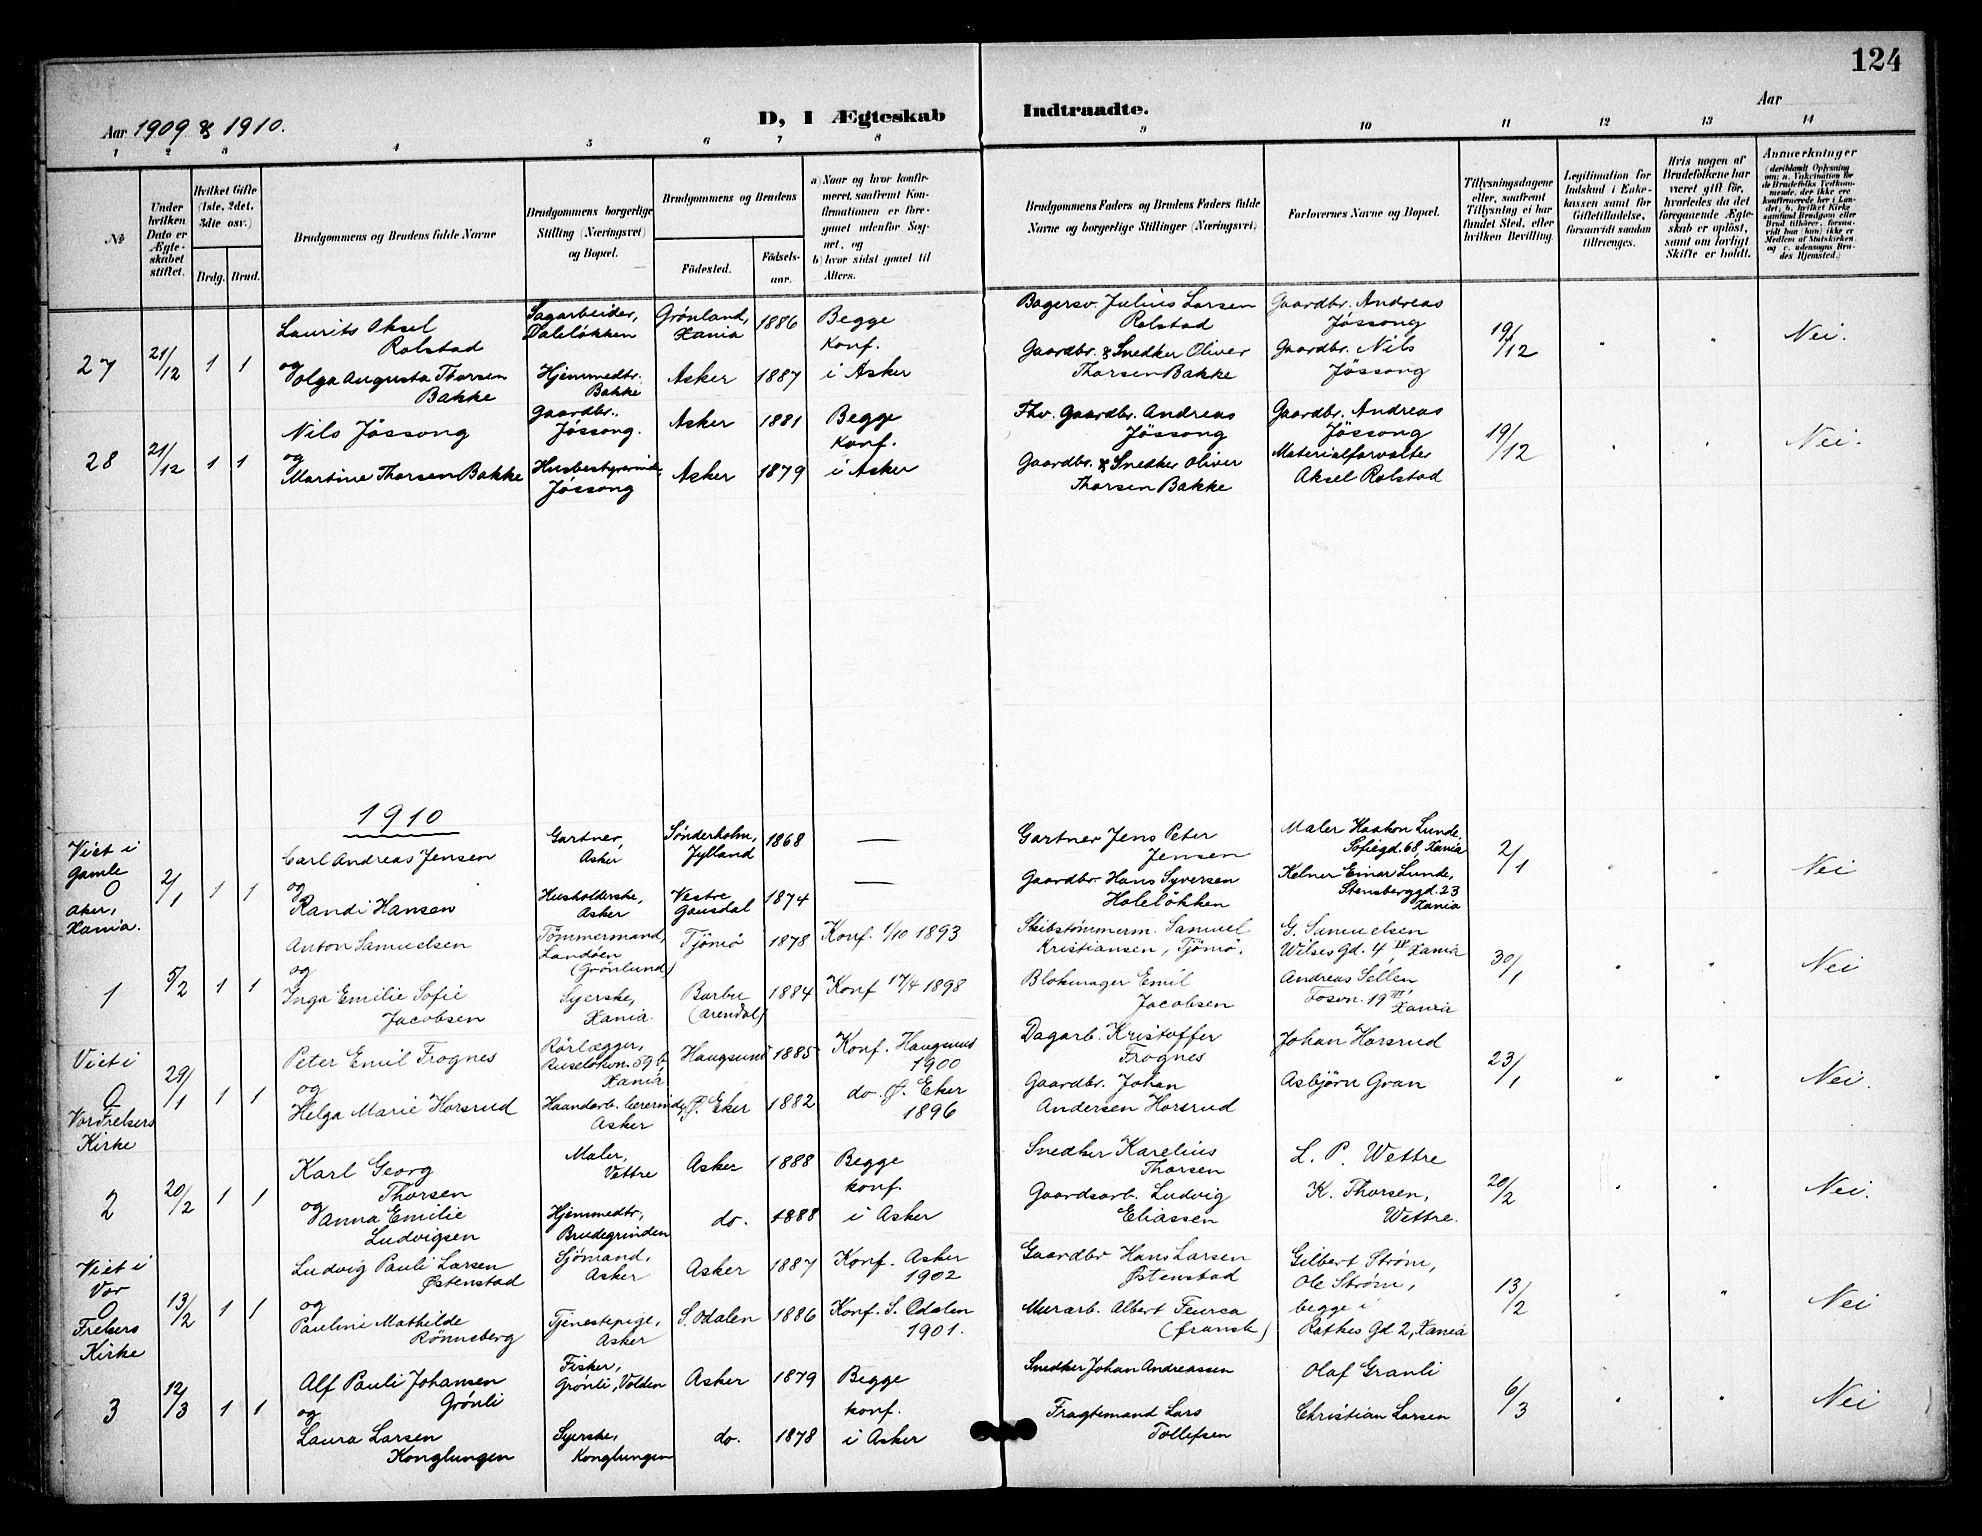 124
Aar 1909 & 1910.
D, I Ægteskab Indtraadte.
Aar
1 2 3 4 5 6 7 8 9 10 11 12 13 14
№
Under hvilken Dato er Ægteskabet stiftet.
Hvilket Gifte (1ste, 2det, 3dte osv.)
Brdg. Brud.
Brudgommens og Brudens fulde Navne
Brudgommens borgerlige Stilling (Næringsvei) og Bopæl.
Brudgommens og Brudens
Födested.
Födselsaar.
a) Naar og hvor konfirmeret, saafremt Konfirmationen er foregaaet udenfor Sognet, og
b) hvor sidst gaaet til Alters.
Brudgommens Faders og Brudens Faders fulde Navne og borgerlige Stillinger (Næringsvei)
Forlovernes Navne og Bopæl.
Tillysningsdagene eller, saafremt Tillysning ei har fundet Sted, efter hvilken Bevilling.
Legitimation for Indskud i Enkekassen samt for Giftetilladelse, forsaavidt saadan tiltrænges.
Hvis nogen af Brudefolkene har været gift för, hvorledes da det foregaaende Ægteskab er oplöst, samt om lovligt Skifte er holdt.
Anmærkninger
(deriblandt Oplysning om: a. Vakcination for de Brudefolks Vedkommende, der ikke ere konfirmerede her i Landet, b. hvilket Kirkesamfund Brudgom eller Brud tilhörer, forsaavidt han (hun) ikke er Medlem af Statskirken og c. udensogns Brudes Hjemsted.)
27 21/12 1 1
Laurits Aksel
Rolstad
og
Volga Augusta Thorsen
Bakke
Sagarbeider,
Daleløkken
Hjemmedtr.
Bakke
Grønland,
Xania
1886
Asker 1887
Begge
konf.
i Asker
Bagersv. Julius Larsen
Rolstad
Gaardbr. & Snedker Oliver
Thorsen Bakke
Gaardbr. Andreas
Jössong
Gaardbr. Nils
Jössong
19/12 " " Nei.
28 21/12 1 1
Nils Jössong
og
Martine Thorsen Bakke
Gaardbr.,
Jössong.
Husbestyrerinde,
Jössong
Asker 1881
Asker 1879
Begge
konf.
i Asker
Fhv. Gaardbr. Andreas
Jössong
Gaardbr. & Snedker Oliver
Thorsen Bakke
Gaardbr. Andreas
Jössong
Materialforvalter
Aksel Rolstad
19/12 " " Nei.
1910
Viet i
Gamle
O
Aker,
Xania.
2/1 1 1
Carl Andreas Jensen
og
Randi Hansen
Gartner,
Asker
Husholderske,
Asker
Sönderholm,
Jylland
1868
Vestre
Gausdal
1874
—
—
Gartner Jens Peter
Jensen
Gaardbr. Hans Syversen
Holeløkken
Maler Haakon Lunde,
Sofiegd. 68, Xania
Kelner Einar Lunde,
Stensberggd. 23
Xania
2/1 " " Nei
1 5/2 1 1
Anton Samuelsen
og
Inga Emilie Sofie
Jacobsen
Tömmermand,
Landöen
(Grönlund)
Syerske,
Xania.
Tjömö 1878
Barbu
(Arendal)
1884
Konf. 1/10 1893
Konf 17/4 1898
Skibstömmerm. Samuel
Kristiansen, Tjömö.
Blokmager Emil
Jacobsen
G. Samuelsen
Wilses Gd. 4 IV, Xania
Andreas Sellen
Fosvn. 19 III,
Xania
30/1 " " Nei
Viet i
O
Vor Frelsers
Kirke
29/1 1 1
Peter Emil Frognes
og
Helga Marie Horsrud
Rörlægger,
Ruseløkvn. 59 b,
Xania
Haandarb. lærerinde,
Asker
Haugsund 1885
Ø. Eker 1882
Konf. Haugsund
1900
do. Ø. Eker
1896
Dagarb. Kristoffer
Frognes
Gaardbr. Johan
Andersen Horsrud
Johan Horsrud
Asbjörn Gran
23/1 " " Nei.
2 20/2 1 1
Karl Georg
Thorsen
og
Anna Emilie
Ludvigsen
Maler,
Vettre
Hjemmedtr.,
Brudegrinden
Asker 1888
do. 1888
Begge
konf.
i Asker
Snedker Karelius
Thorsen
Gaardsarb. Ludvig
Eliassen
L. P. Wettre
K. Thorsen,
Wettre.
20/2 " " Nei.
Viet i
Vor
O
Frelsers
Kirke
13/2 1 1
Ludvig Pauli Larsen
Østenstad
og
Pauline Mathilde
Rönnsberg
Sjömand,
Asker
Tjenestepige,
Asker
Asker 1887
S. Odalen 1886
Konf. Asker
1902
Konf. S. Odalen
1901.
Gaardbr Hans Larsen
Østenstad
Murarb. Albert
(fransk)
Gilbert Strøm,
Ole Strøm,
begge i
Rathkes Gd 2, Xania
13/2 " " Nei
3 12/3 1 1
Alf Pauli Johansen
Grönli
og
Laura Larsen
Konglungen
Fisker,
Grönli, Volden
Syerske,
Konglungen
Asker 1879
do. 1878
Begge
konf.
i Asker
Snedker Johan Andreassen
Fragtemand Lars
Tollefsen
Olaf Granli
Christian Larsen
6/3 " " Nei